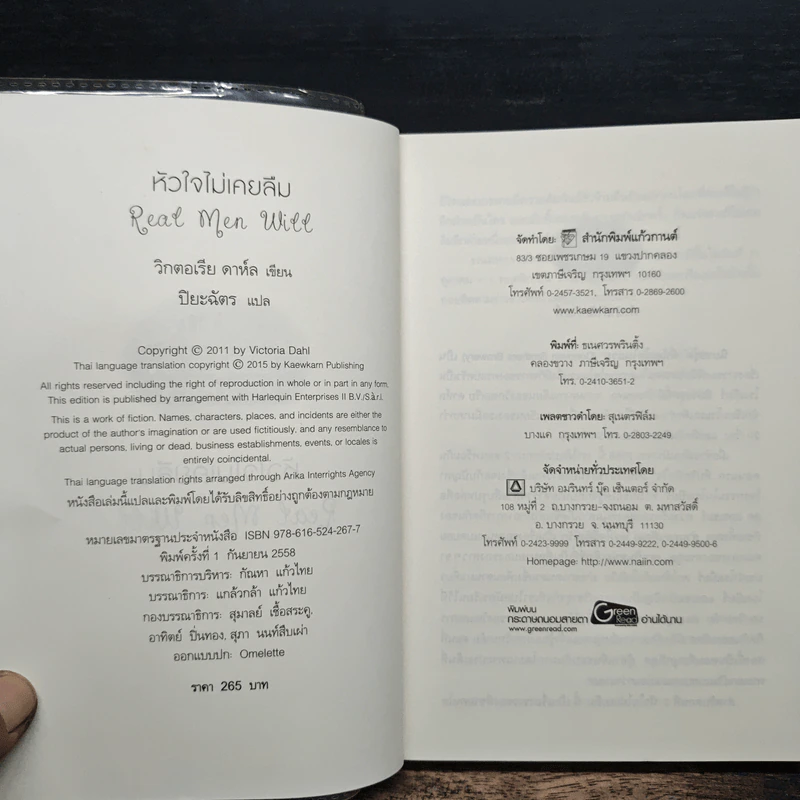 หัวใจไม่เคยลืม
Real Men Will
วิกตอเรีย ดาห์ล เขียน
ปิยะฉัตร แปล
Copyright © 2011 by Victoria Dahl
Thai language translation copyright © 2015 by Kaewkarn Publishing
All rights reserved including the right of reproduction in whole or in part in any form.
This edition is published by arrangement with Harlequin Enterprises II B.V./S.à.r.l.
This is a work of fiction. Names, characters, places, and incidents are either the
product of the author's imagination or are used fictitiously, and any resemblance to
actual persons, living or dead, business establishments, events, or locales is
entirely coincidental.
Thai language translation rights arranged through Arika Interrights Agency
หนังสือเล่มนี้แปลและพิมพ์โดยได้รับลิขสิทธิ์อย่างถูกต้องตามกฎหมาย
หมายเลขมาตรฐานประจำหนังสือ ISBN 978-616-524-267-7
พิมพ์ครั้งที่ 1 กันยายน 2558
บรรณาธิการบริหาร: กัณหา แก้วไทย
บรรณาธิการ: แกล้วกล้า แก้วไทย
กองบรรณาธิการ: สุมาลย์ เชื้อสระคู,
อาทิตย์ ปิ่นทอง, สุภา นนท์สืบเผ่า
ออกแบบปก: Omelette
ราคา 265 บาท
จัดทำโดย: สำนักพิมพ์แก้วกานต์
83/3 ซอยเพชรเกษม 19 แขวงปากคลอง
เขตภาษีเจริญ กรุงเทพฯ 10160
โทรศัพท์ 0-2457-3521, โทรสาร 0-2869-2600
www.kaewkarn.com
พิมพ์ที่: ธเนศวรพรินติ้ง
คลองขวาง ภาษีเจริญ กรุงเทพฯ
โทร. 0-2410-3651-2
เพลตขาวดำโดย: สุเนตรฟิล์ม
บางแค กรุงเทพฯ โทร. 0-2803-2249
จัดจำหน่ายทั่วประเทศโดย
บริษัท อมรินทร์ บุ๊ค เซ็นเตอร์ จำกัด
108 หมู่ที่ 2 ถ.บางกรวย-จงถนอม ต. มหาสวัสดิ์
อ. บางกรวย จ. นนทบุรี 11130
โทรศัพท์ 0-2423-9999 โทรสาร 0-2449-9222, 0-2449-9500-6
Homepage: http://www.naiin.com
พิมพ์บน
กระดาษถนอมสายตา Green Read อ่านได้นาน
www.greenread.com